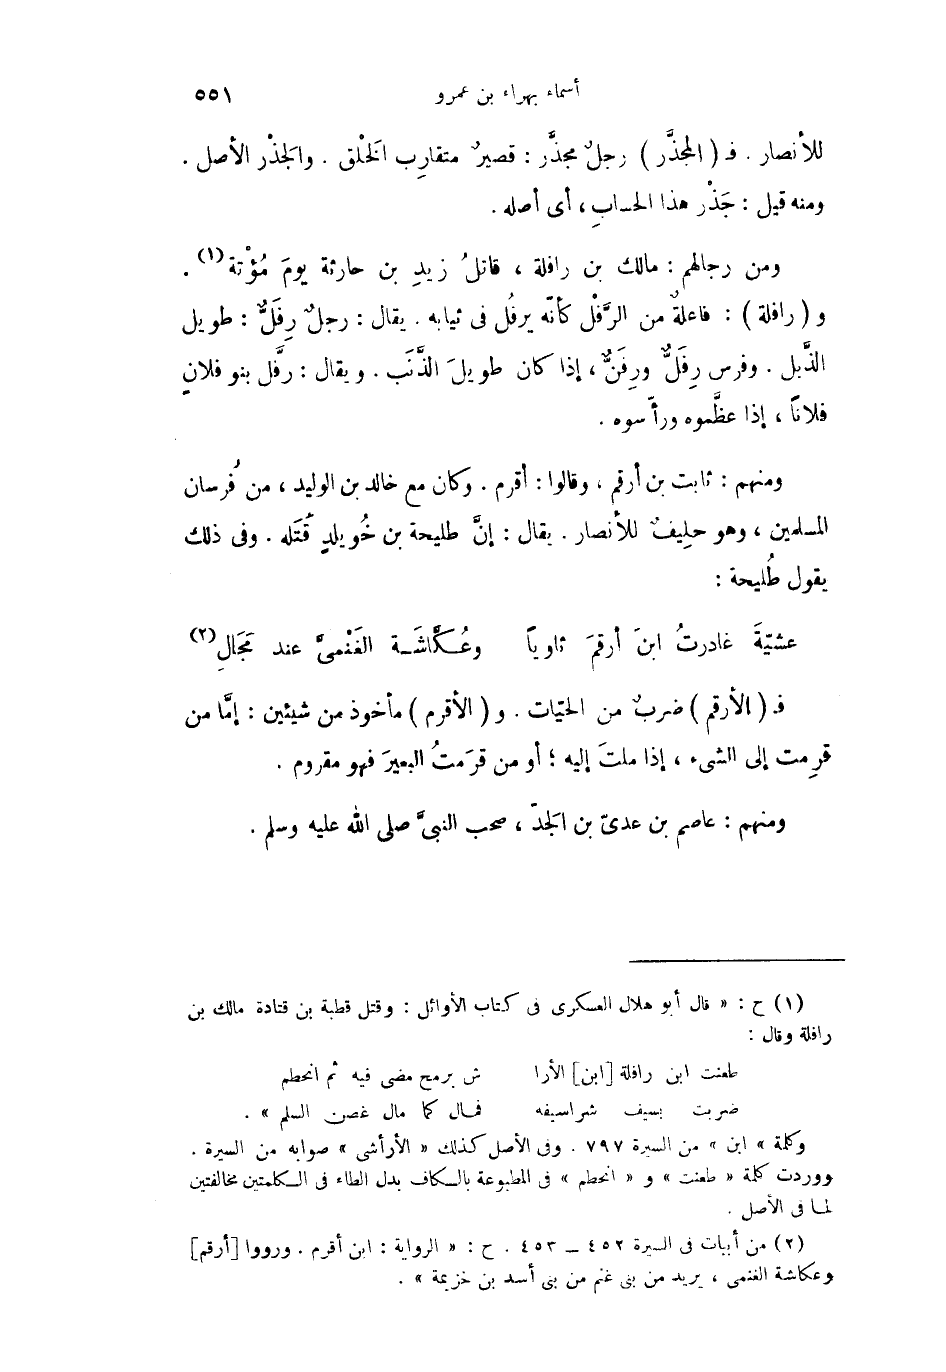 أسماء بهراء بن عمرو ٥٥١
للأنصار . فـ ( المجذَّر ) رجلٌ مجذَّر : قصيرٌ متقارِب الخَلْق . والجذْر الأصل .
ومنه قيل : جَذْر هذا الحسابِ ، أى أصله .
ومن رجالهم : مالك بن رافلة ، قاتلُ زيدِ بن حارثة يومَ مُؤْتة (١) .
و ( رافلة ) : فاعلةٌ من الرَّفْل كأنّه يرفُل فى ثيابه . يقال : رجلٌ رِفَلٌّ : طويل
الذَّيل . وفرس رِفَلٌّ ورِفَنٌّ ، إذا كان طويلَ الذَّنَب . ويقال : رفَّل بنو فلانٍ
فلانًا ، إذا عظَّموه ورأّسوه .
ومنهم : ثابت بن أرقم ، وقالوا : أقرم . وكان مع خالد بن الوليد ، من فُرسان
المسلمين ، وهو حليفٌ للأنصار . يقال : إنَّ طليحة بن خُويلدٍ قَتَله . وفى ذلك
يقول طُليحة :
عشيّةَ غادرتُ ابنَ أرقمَ ثاوياً وعُكَّاشَـة الغَنْمىَّ عند مَجَالِ (٢)
فـ ( الأرقم ) ضربٌ من الحيّات . و ( الأقرم ) مأخوذ من شيئين : إمَّا من
قرِمت إلى الشىء ، إذا ملتَ إليه ؛ أو من قرَمتُ البعيرَ فهو مقروم .
ومنهم : عاصم بن عدىّ بن الجَدّ ، صحب النبىَّ صلى الله عليه وسلم .
(١) ح : « قال أبو هلال العسكرى فى كتاب الأوائل : وقتل قطبة بن قتادة مالك بن
رافلة وقال :
طعنت ابن رافلة [ابن] الأرا ش برمح مضى فيه ثم انحطم
ضربت بسيف شراسيفه فمـال كما مال غصن السلم » .
وكلمة » ابن » من السيرة ٧٩٧ . وفى الأصل كذلك « الأرأشى » صوابه من السيرة .
ووردت كلمة « طعنت » و « انحطم » فى المطبوعة بالـكاف بدل الطاء فى الـكلمتين مخالفتين
لمـا فى الأصل .
(٢) من أبيات فى السيرة ٤٥٢ – ٤٥٣ . ح : « الرواية : ابن أقرم . ورووا [أرقم]
وعكاشة الغنمى ، يريد من بنى غنم من بنى أسد بن خزيمة » .